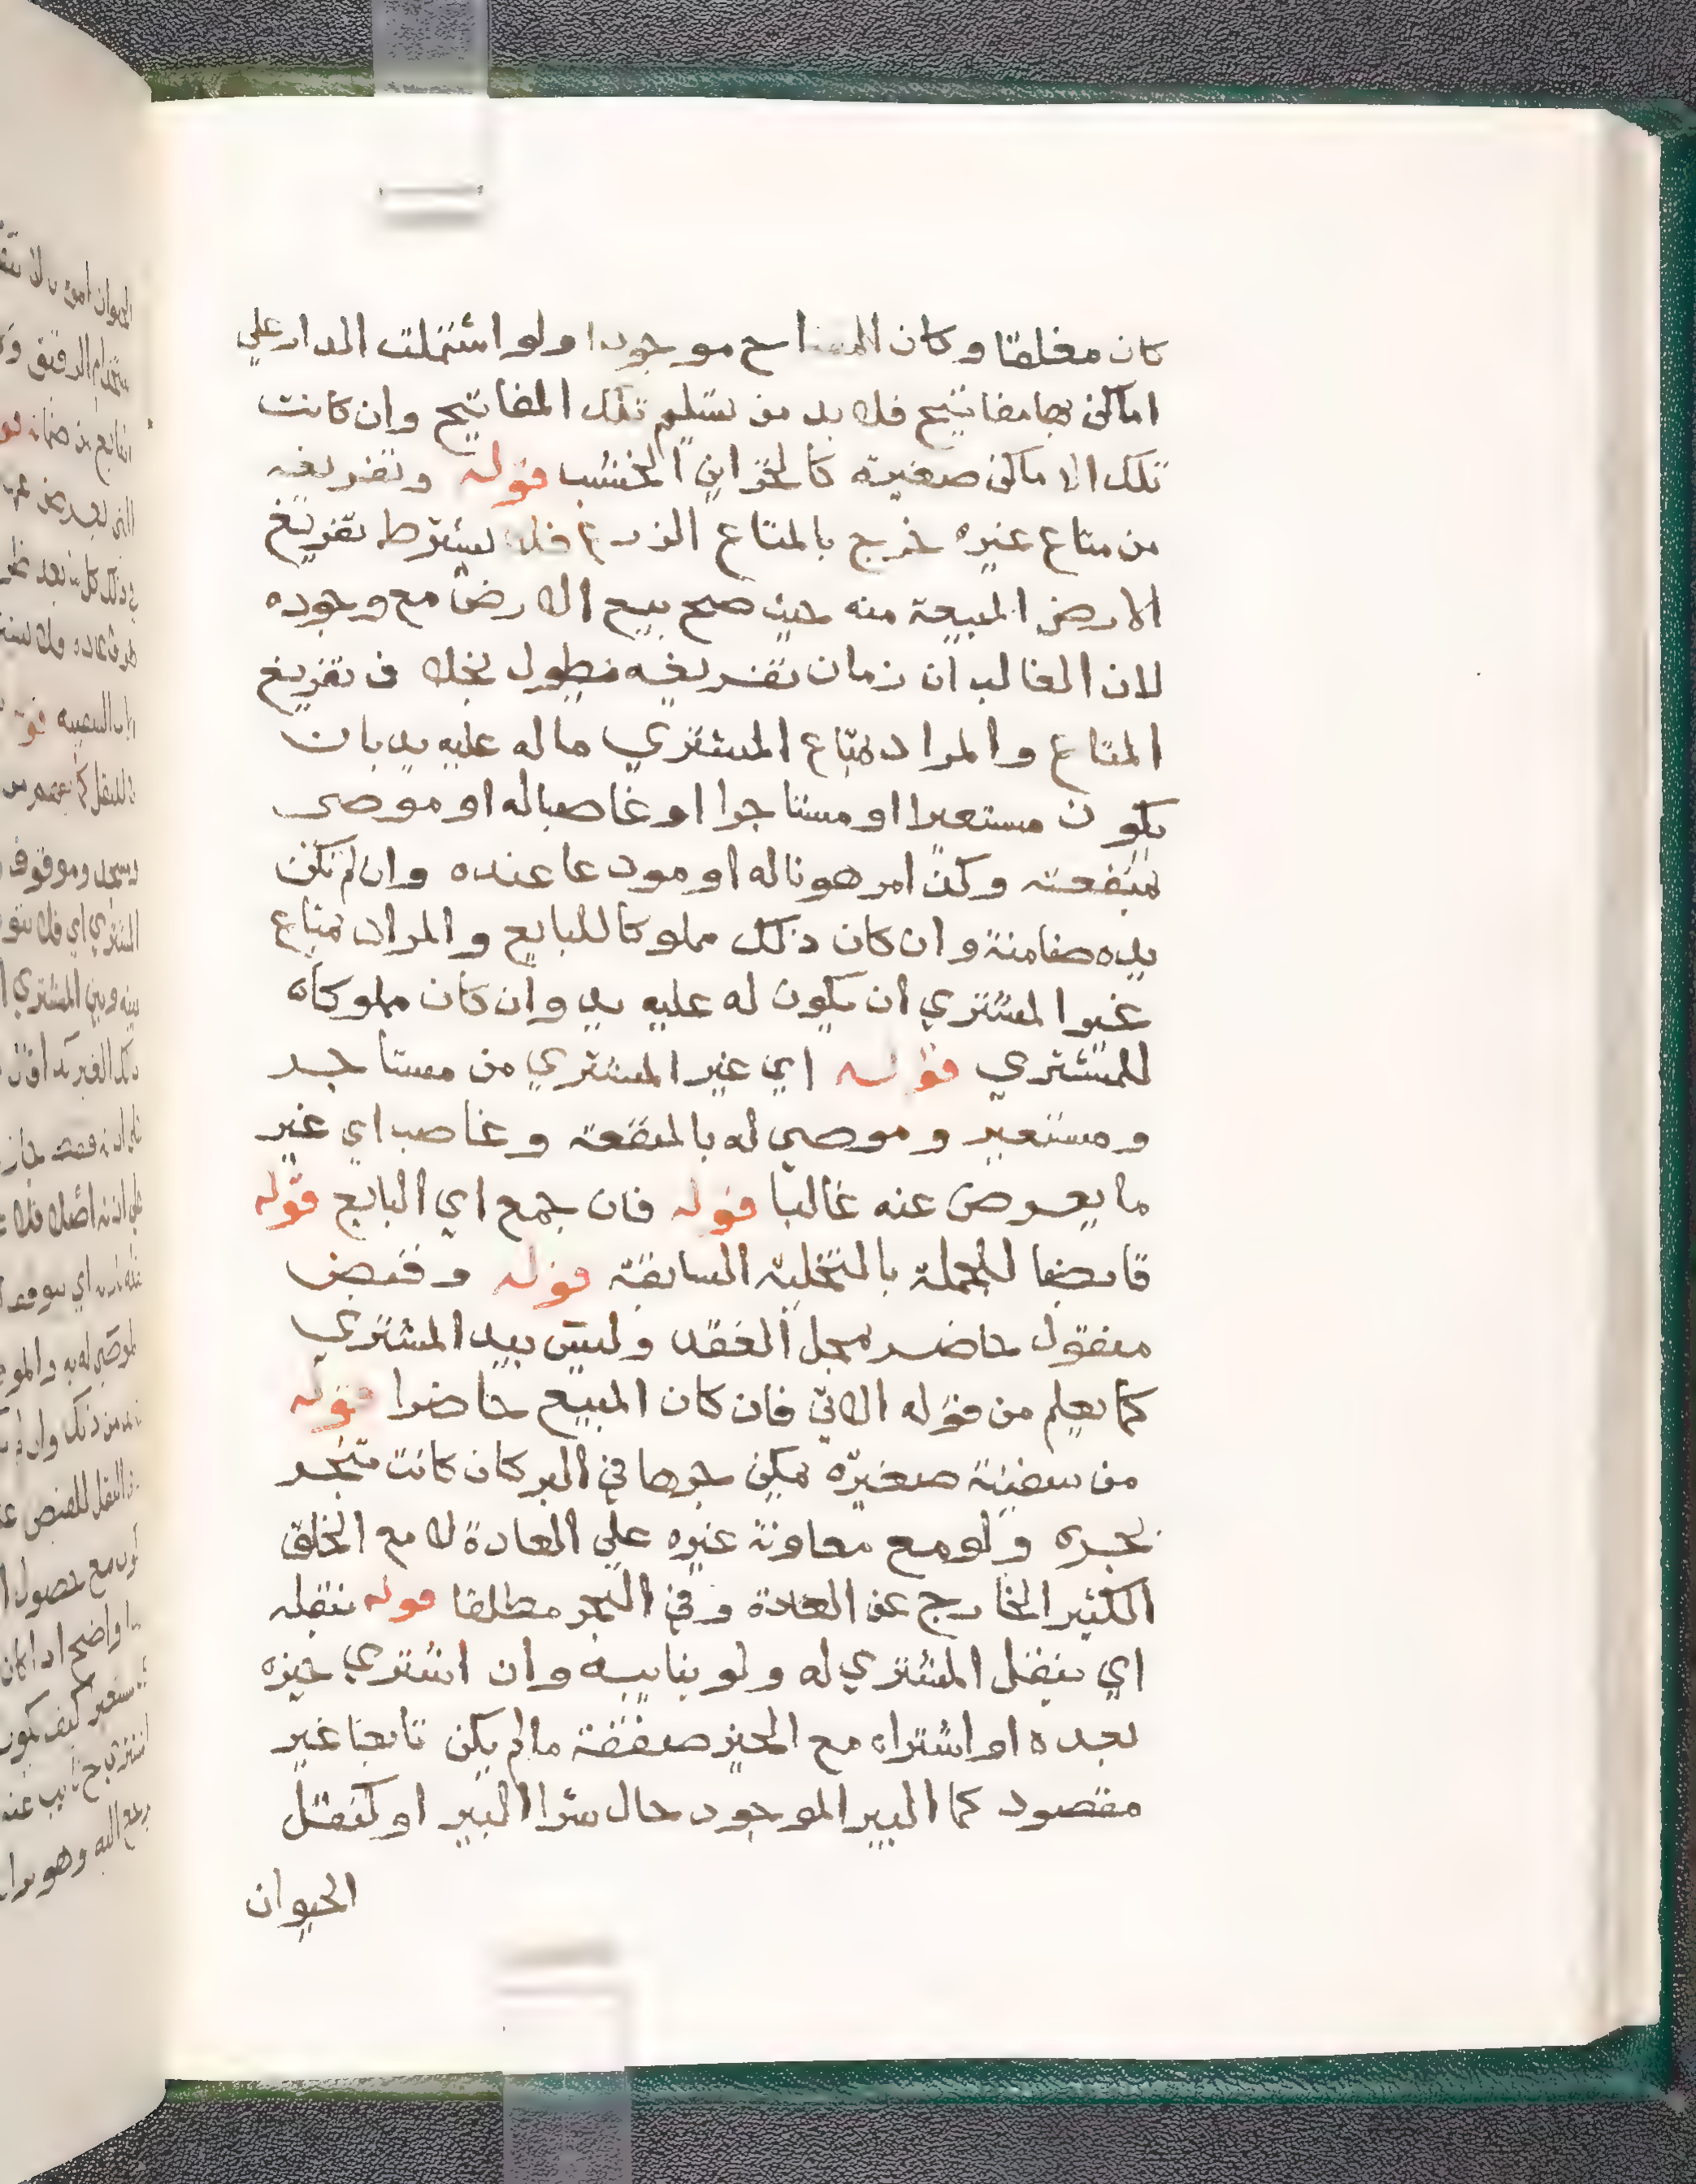 كان مغلقا وكان المفتاح موجودا ولو اشتملت الدار علي
اماكن بها مفاتيح فلا بد من تسليم تلك المفاتيح وان كانت
تلك الاماكن صغيرة كالخزاين الخشب قوله وتفريغه
من متاع غيره خرج بالمتاع الزرع فلا يشترط تفريغ
الارض المبيعة منه حيث صح بيع الارض مع وجوده
لان الغالب ان زمان تفريغه يطول بخلاف تفريغ
المتاع والمراد بمتاع المشتري ماله عليه يد بان
يكون مستعيرا او مستاجرا او غاصبا له او موصي
بمنفعته وكذا مرهونا له او مودعا عنده وان لم تكن
يده ضامنة وان كان ذلك مملوكا للبايع والمراد بمتاع
غير المشتري ان يكون له عليه يد وان كان مملوكاه
للمشتري قوله اي غير المشتري من مستاجر
ومستعير وموصي له بالمنفعة وغاصب اي غير
ما يعوض عنه غالبا قوله فان جمع اي البايع قوله
قابضا للجملة بالتخلية السابقة قوله وقبض
منقول حاضر بمحل العقد وليس بيد المشتري
كما يعلم من قوله الاتي فان كان المبيع حاضرا قوله
من سفينة صغيرة يمكن جرها في البر كان كانت تنجر
بجره ولو مع معاونة غيره علي العادة لا مع الخلق
الكثير الخارج عن العادة وفي البحر مطلقا قوله بنقله
اي بنقل المشتري له ولو بنايبه وان اشتري حيزه
بعده او اشتراه مع الحيز صفقة مالم يكن تابعا غير
مقصود كما البير الموجود حال شرا البير او كنقل
الحيوان